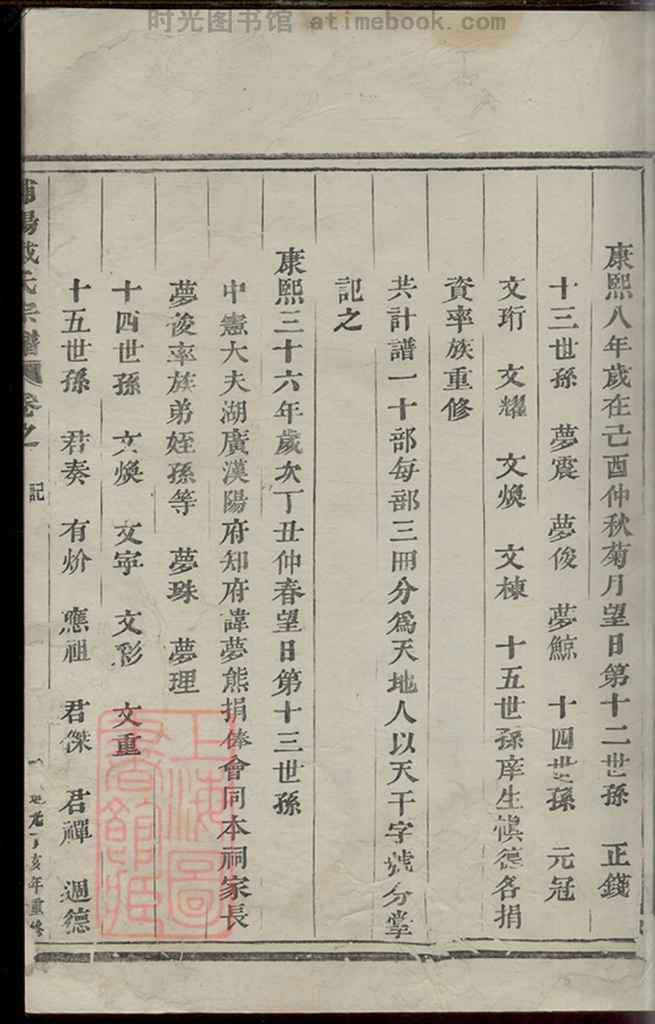 时光图书馆 atimebook.com
康熙八年歲在己酉仲秋菊月望日第十二世孫 正錢
十三世孫 夢震 夢俊 夢鯨 十四世孫 元冠
文珩 文耀 文煥 文棟 十五世孫庠生慎德各捐
資率族重修
共計譜一十部每部三冊分為天地人以天干字號分掌
記之
康熙三十六年歲次丁丑仲春望日第十三世孫
中憲大夫湖廣漢陽府知府諱夢熊捐俸會同本祠家長
夢後率族弟姪孫等 夢珠 夢理
十四世孫 文煥 文寧 文彩 文重
十五世孫 君奏 有炌 應祖 君傑 君禪 週德
陽戚氏宗譜 卷之一 記 丁亥年重修
上海圖書館